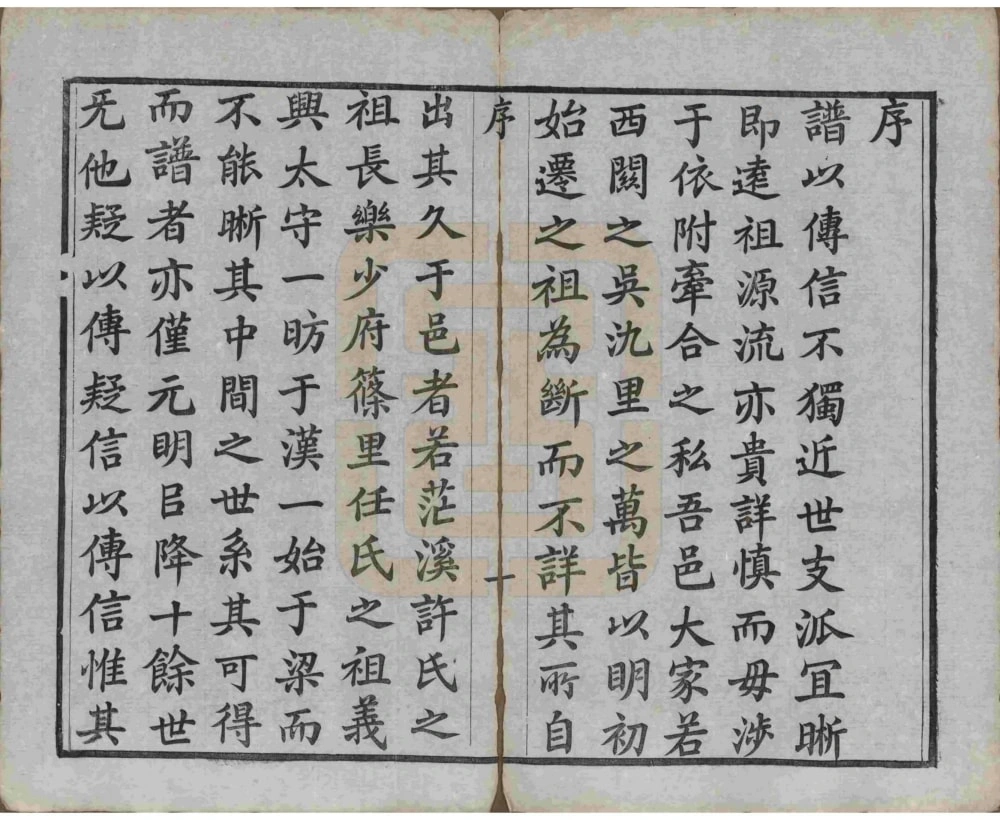 序
譜以傳信不獨近世支派冝晣
即遠祖源流亦貴詳慎而毋涉
于依附牽合之私吾邑大家若
西闕之吳氿里之萬皆以明初
始遷之祖為斷而不詳其所自
序
一
出其久于邑者若茫溪許氏之
祖長樂少府篠里任氏之祖義
興太守一昉于漢一始于梁而
不能晣其中間之世系其可得
而譜者亦僅元明㠯降十餘世
旡他疑以傳疑信以傳信惟其